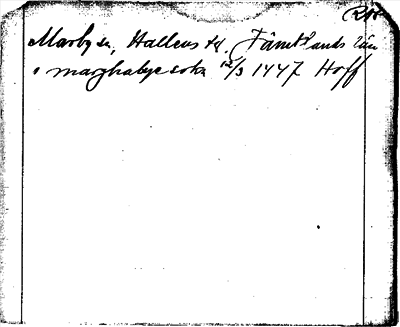 Marby sn, Hallens td. Jämtlands län
i marghabyc sokn 12/3 1447 Hoff